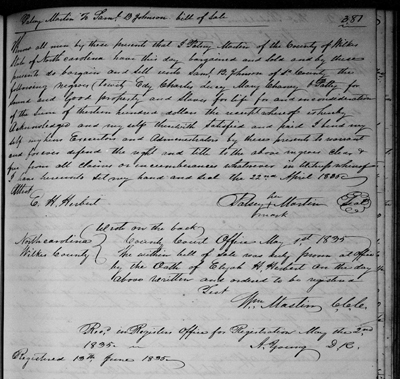 Patsy Martin To Saml. B Johnson bill of Sale
381
Know all men by these presents that I Patsy Martin of the County of Wilkes
State of North carolina have this day bargained and Sold and by these
presents do bargain and Sell unto Saml. B Johnson of Sd County the
following Negroes (to wit) Edy Charles Lucy Mary Chaney & Patsy, for
sound and Good property and Slaves for life for and in consideration
of the Sum of thirteen hundred dollars the receipt whereof I hereby
Acknowledged and my self therewith Satisfied and paid I bind my
Self my heirs Executors and Administrators by these presents to warrant
and forever defend the right and title to the above negroes clear
from all claims or incumbrances whatsoever in Witness whereof
I have hereunto Set my hand and Seal the 22nd April 1835
Attest
her
E. H. Herbert Patsey + Martin Seal
mark
Wrote on the back
North carolina County Court Office May 1st 1835
Wilkes County The within bill of Sale was duly proven in Office
by the Oath of Elijah H. Herbert on the day
above written and ordered to be registered
Test
Wm. Mastin C.C.C.
Recd. in Registers Office for Registration May the 2nd
1835 A. Young D R.
Registered 13th June 1835